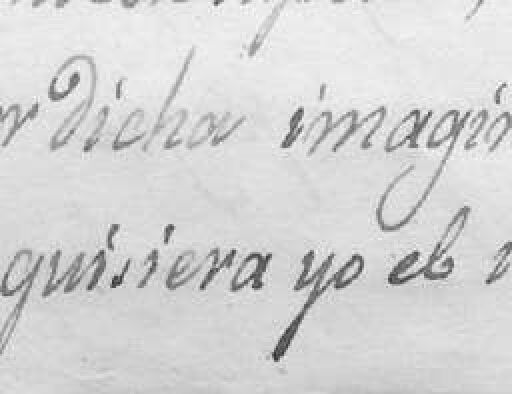 dicha imagin
quisiera yo el